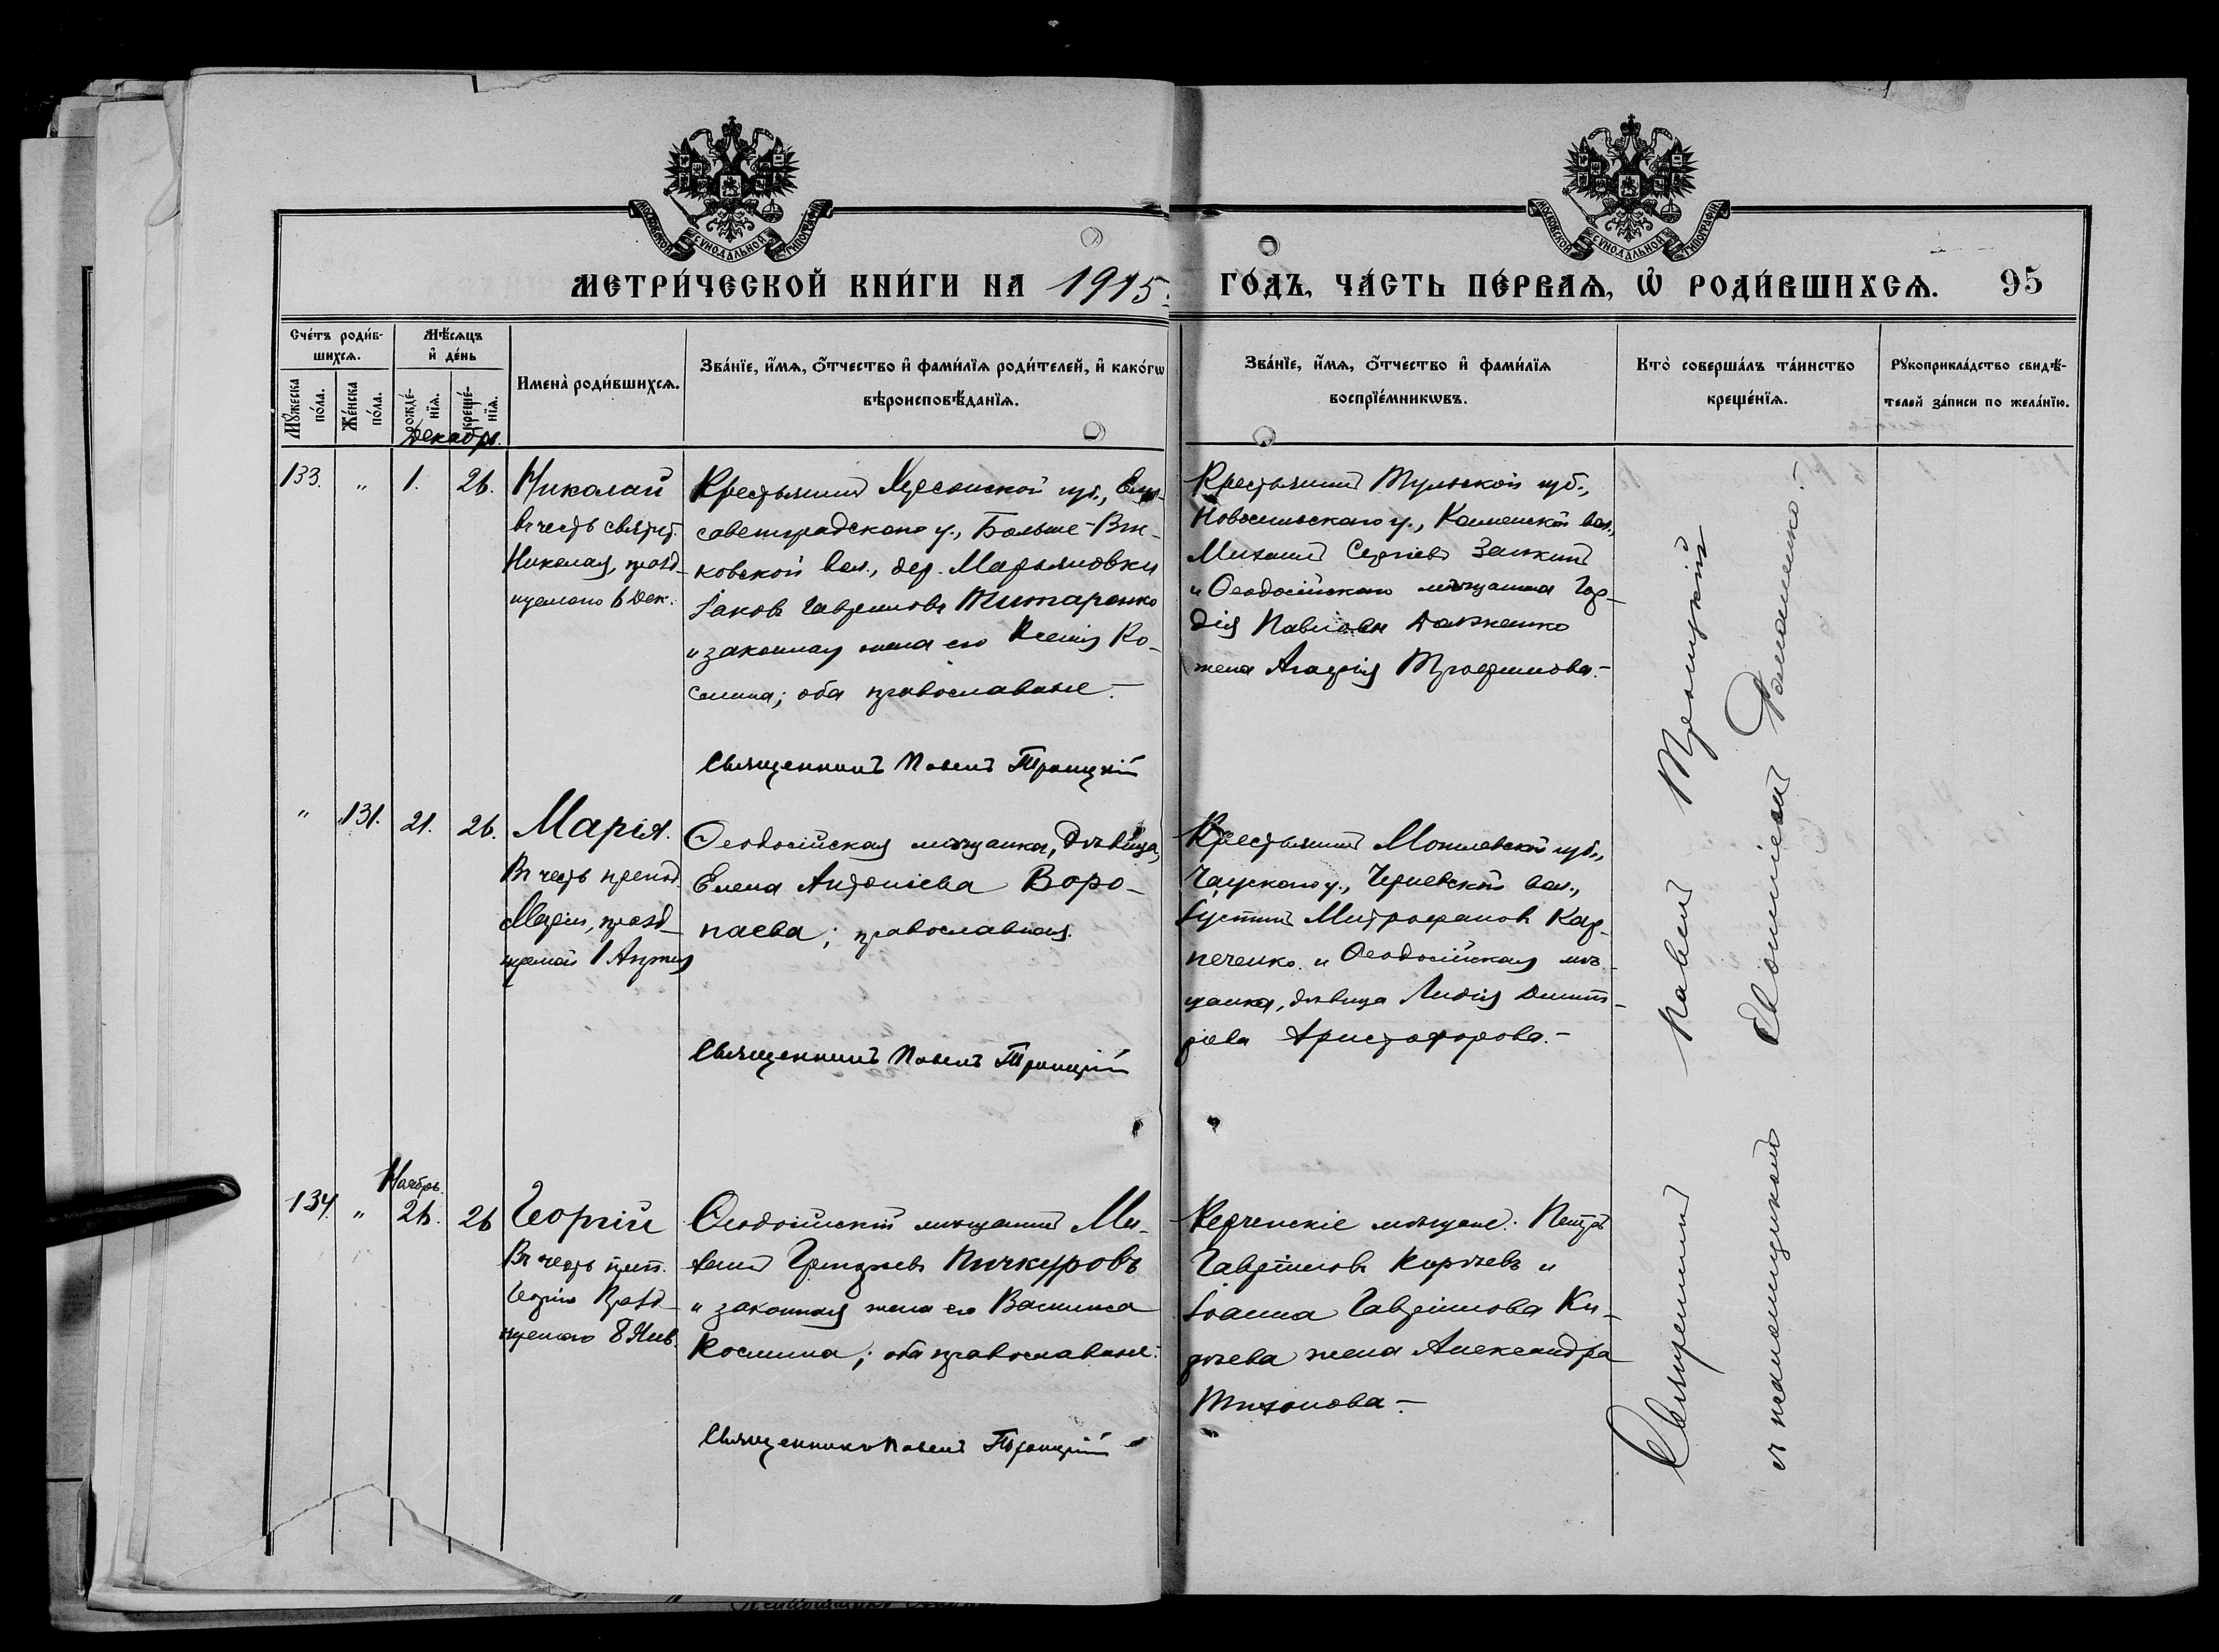 МОСКОВСКОЙ СУНОДАЛЬНОЙ ТИПОГРАФІИ
МОСКОВСКОЙ СУНОДАЛЬНОЙ ТИПОГРАФІИ
МЕТРИ́ЧЕСКОЙ КНИ́ГИ НА 1915
ГО́ДЪ, ЧА́СТЬ ПЕ́РВАѦ, Ѡ҆ РОДИ́ВШИХСѦ. 95
Сче́тъ роди́в-
шихсѧ.
Мѣ́сѧцъ
и҆ де́нь
Мꙋ́жеска
по́ла.
Же́нска
по́ла.
рожде́-
нїѧ.
креще́-
нїѧ.
Имена̀ роди́вшихсѧ.
Зва́нїе, и҆́мѧ, ѻ҆́тчество и҆ фами́лїѧ роди́телей, и҆ како́гѡ
вѣроисповѣ́данїѧ.
Зва́нїе, и҆́мѧ, ѻ҆́тчество и҆ фами́лїѧ
воспрїе́мникѡвъ.
Кто̀ соверша́лъ та́инство
креще́нїѧ.
Рꙋкоприкла́дство свидѣ́-
телей за́писи по жела́нїю.
Декабрь.
133. " 1. 26. Николай
въ честь святит.
Николая, празд-
нуемаго 6 Дек.
Крестьянинъ Херсонской губ., Ели-
саветградскаго у., Больше-Вис-
ковской вол., дер. Марьяновки
Іаковъ Гавриловъ Титаренко
и законная жена его Ксенія Ко-
смина; оба православные.-
Священникъ Павелъ Троицкій
Крестьянинъ Тульской губ.,
Новосильскаго у., Каменской вол.,
Михаилъ Сергіевъ Заикинъ
и Ѳеодосійскаго мѣщанина Гор-
дія Павлова Долженко
жена Агафія Трофимова.-
" 131. 21. 26. Марія.
Въ честь препод.
Маріи, празд-
нуемой 1 Апрѣля
Ѳеодосійская мѣщанка, дѣвица,
Елена Антоніева Воро-
паева; православная.
Священникъ Павелъ Троицкій
Крестьянинъ Могилевской губ.,
Чаусскаго у., Черневской вол.,
Іустинъ Митрофановъ Кар-
печенко и Ѳеодосійская мѣ-
щанка, дѣвица Лидія Димит-
ріева Христофорова.-
Ноябрь.
134. " 26. 26 Георгій
Въ честь преп.
Георгія празд-
нуемаго 8 Янв.
Ѳеодосійскій мѣщанинъ Ми-
хаилъ Григорьевъ Пичкуровъ
и законная жена его Василиса
Космина; оба православные.
Священникъ Павелъ Троицкій
Керченскіе мѣщане: Петръ
Гавріиловъ Кирѣевъ и
Іоанна Гавріилова Ки-
рѣева жена Александра
Тихонова.-
Священникъ Павелъ Троицкій
съ псаломщикомъ Романенко.-